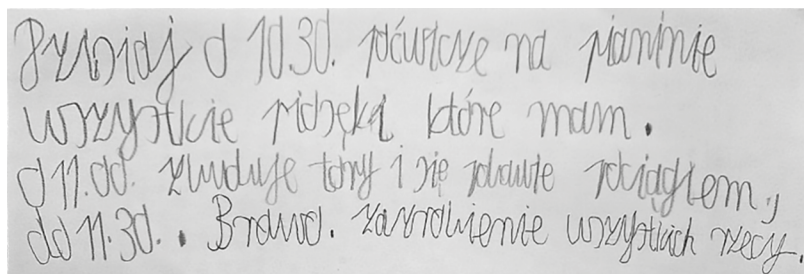 Dzisiaj o 10.30. poćwiczę na pianinie
wszystkie piosęki które mam.
o 11.00. zbuduje tory i się pobawie pociągiem,
do 11.30. . Brawo. za zrobienie wszystkich rzeczy.